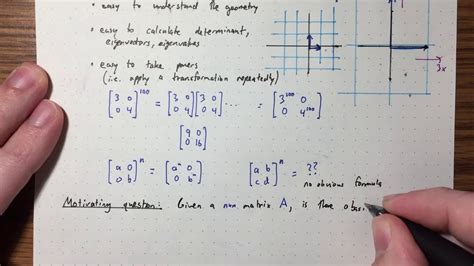 • easy to understand the geometry
• easy to calculate determinant,
eigenvectors, eigenvalues
• easy to take powers
(i.e. apply a transformation repeatedly)
[3 0; 0 4]^100 = [3 0; 0 4][3 0; 0 4] ... = [3^100 0; 0 4^100]
[9 0; 0 16]
[a 0; 0 b]^n = [a^n 0; 0 b^n]
[a b; c d]^n = ??
no obvious formula
Motivating question: Given a nxn matrix A, is there
3x